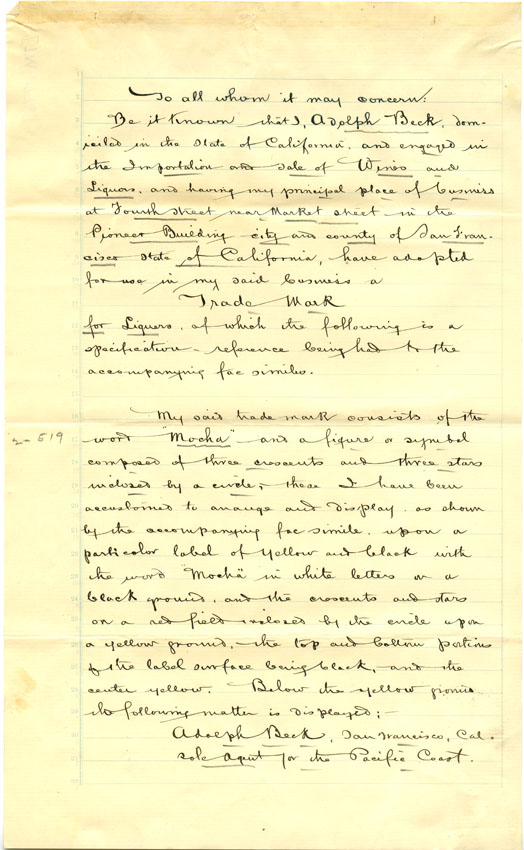 To all whom it may concern:
Be it Known that I, Adolph Beck, dom-
iciled in the State of California, and engaged in
the Importation and sale of Wines and
Liquors, and having my principal place of business
at Fourth street near Market street in the
Pioneer Building city and county of San Fran-
cisco State of California, have adopted
for use in my said business a
Trade Mark
for Liquors, of which the following is a
specification - reference being had to the
accompanying fac similes.
My said trade mark consists of the
2-519
word "Mocha" and a figure or symbol
composed of three crescents and three stars
inclosed by a circle; these I have been
accustomed to arrange and display, as shown
by the accompanying fac simile, upon a
particolor label of yellow and black with
the word "Mocha" in white letters on a
black ground, and the crescents and stars
on a red field inclosed by the circle upon
a yellow ground, the top and bottom portions
of the label surface being black, and the
center yellow. Below the yellow
the following matter is displayed; -
Adolph Beck, San Francisco, Cal.
sole Agent for the Pacific Coast.